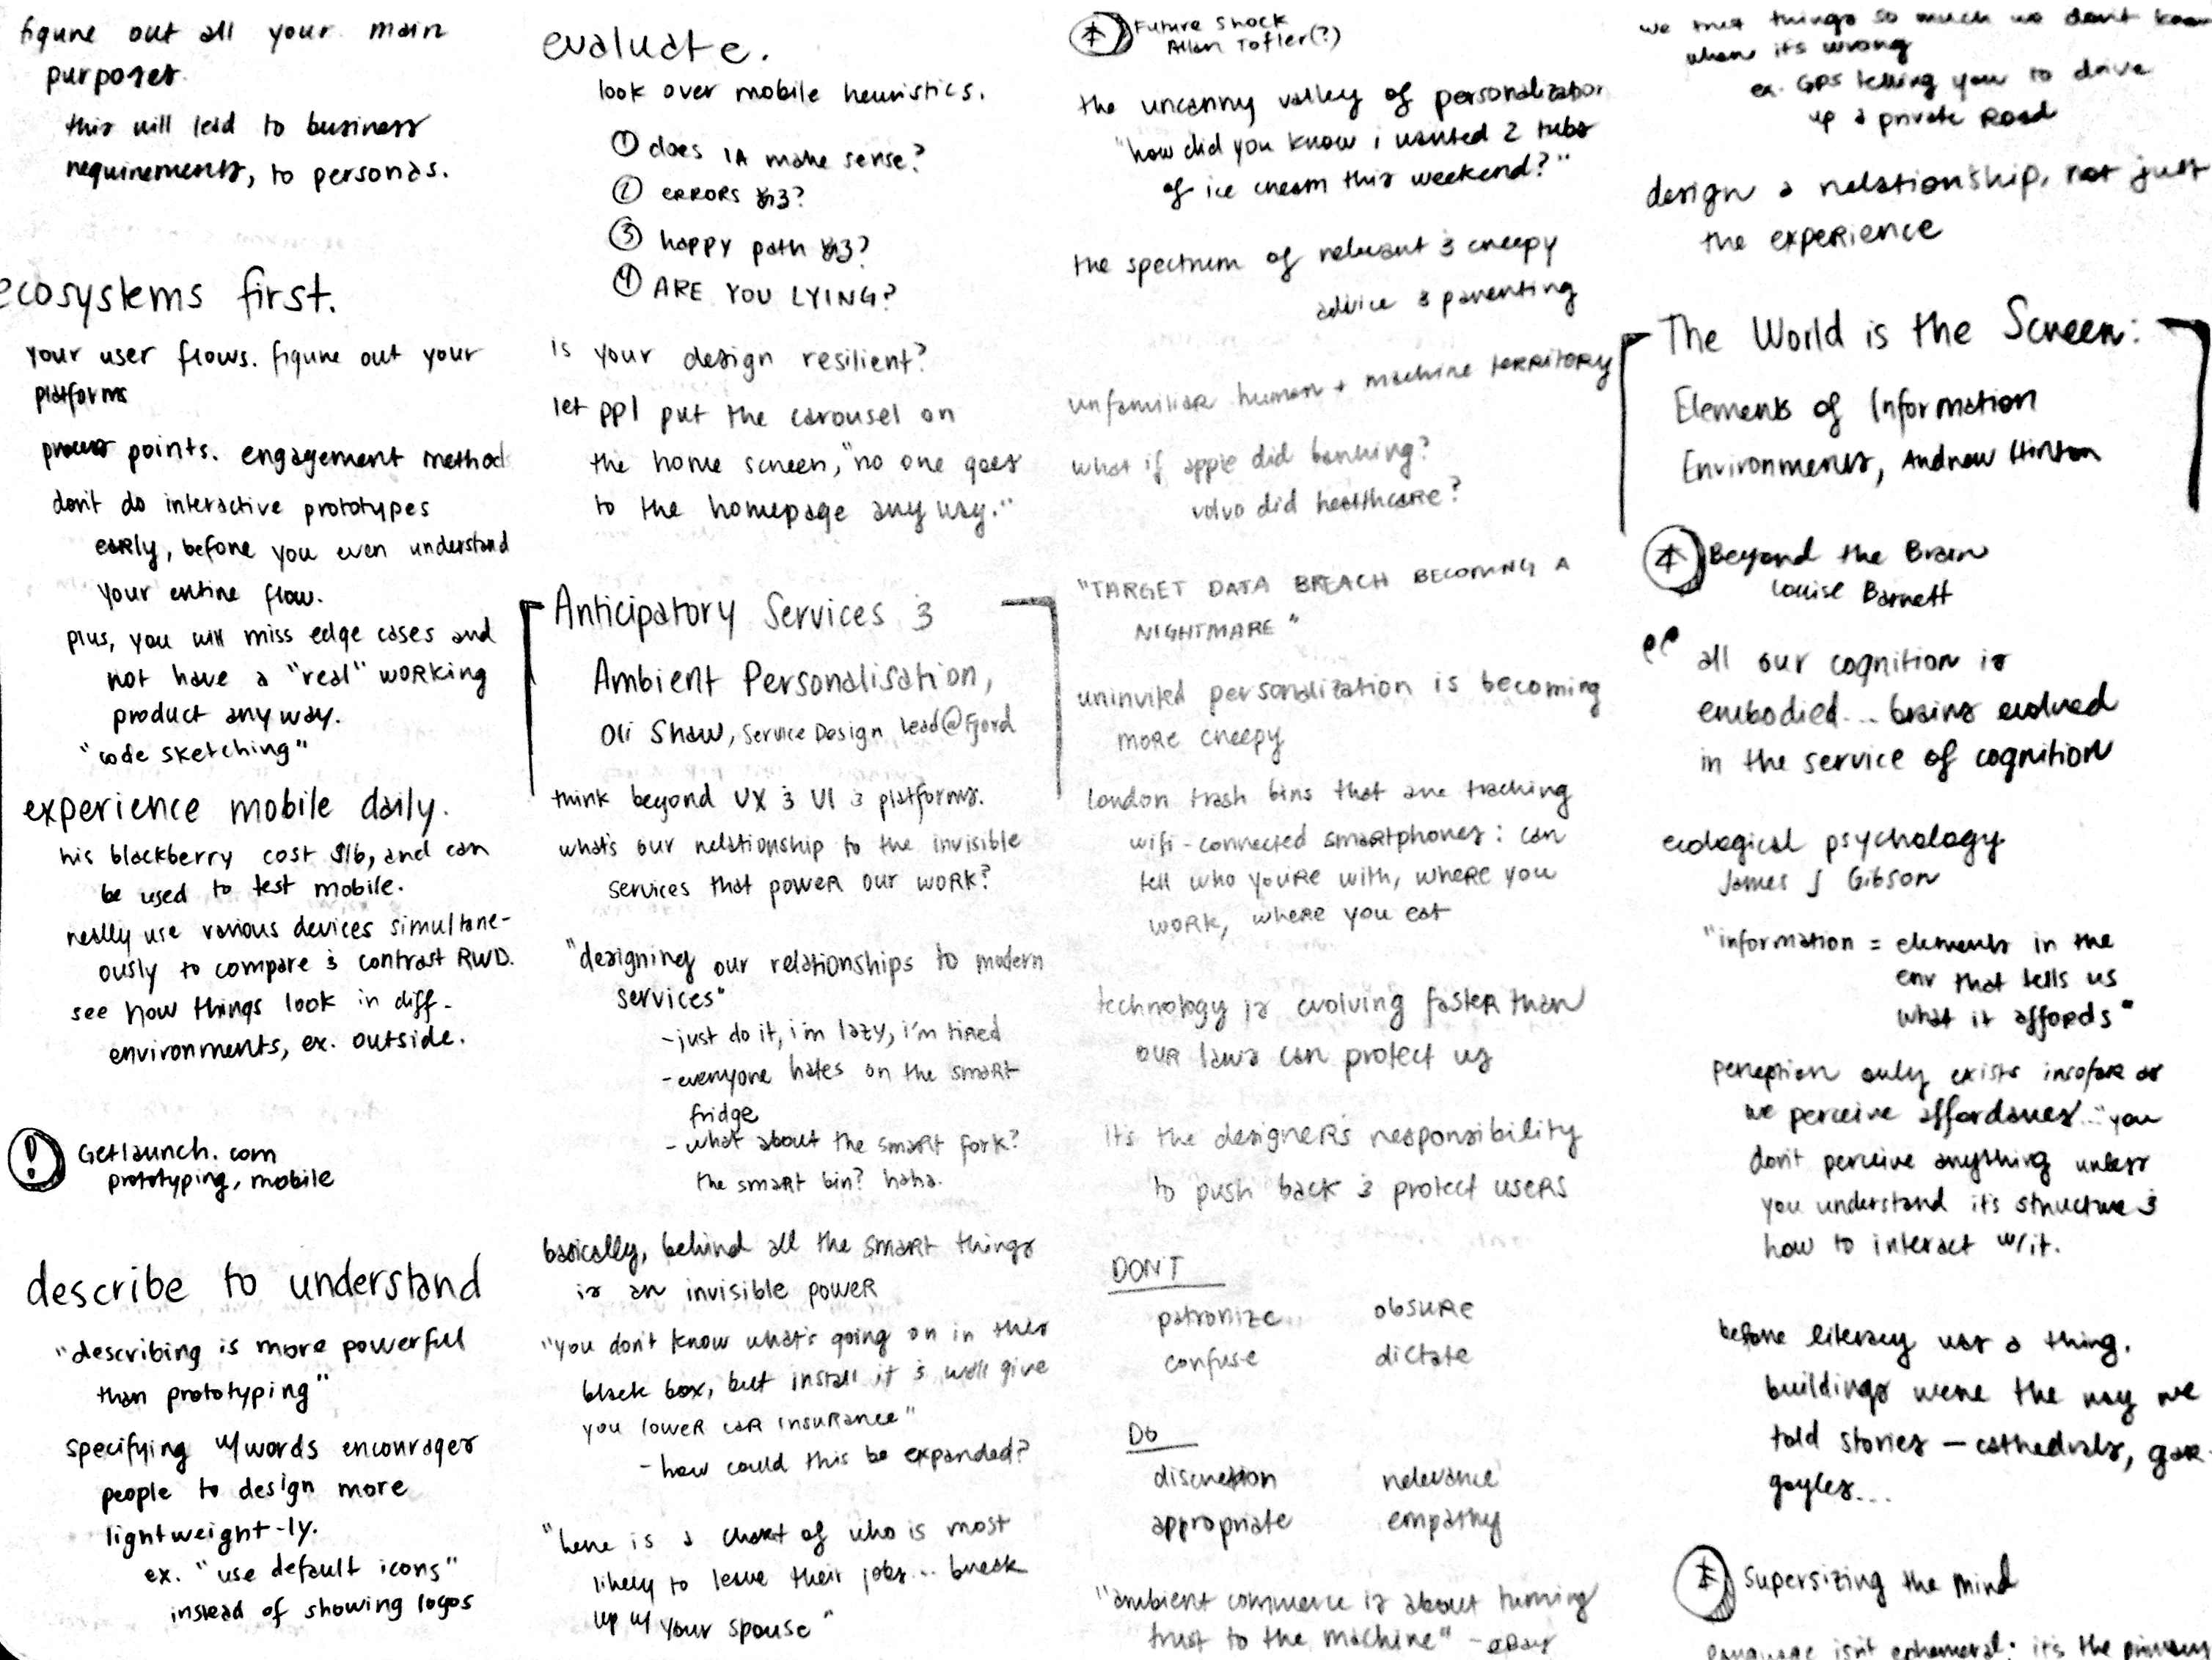 figure out all your main
purposes.
this will lead to business
requirements, to personas.
ecosystems first.
your user flows. figure out your
platforms
points. engagement method
don't do interactive prototypes
early, before you even understand
your entire flow.
plus, you will miss edge cases and
not have a "real" working
product anyway.
"code sketching"
experience mobile daily.
his blackberry cost $16, and can
be used to test mobile.
really use various devices simultane-
ously to compare & contrast RWD.
see how things look in diff.
environments, ex. outside.
! Getlaunch.com
prototyping, mobile
describe to understand
"describing is more powerful
than prototyping"
specifying w/words encourages
people to design more
lightweight-ly.
ex. "use default icons"
instead of showing logos
evaluate.
look over mobile heuristics.
① does IA make sense?
② ERRORS x3?
③ happy path x3?
④ ARE YOU LYING?
is your design resilient?
let ppl put the carousel on
the home screen, "no one goes
to the homepage anyway."
Anticipatory Services &
Ambient Personalisation,
Oli Shaw, Service Design Lead@Fjord
think beyond UX & UI & platforms.
what's our relationship to the invisible
services that power our work?
"designing our relationships to modern
services"
- just do it, i'm lazy, i'm tired
- everyone hates on the smart
fridge
- what about the smart fork?
the smart bin? haha.
basically, behind all the smart things
is an invisible power
"you don't know what's going on in this
black box, but install it & we'll give
you lower car insurance"
- how could this be expanded?
"here is a chart of who is most
likely to leave their jobs... break
up w/ your spouse"
Future Shock
Allan Tofler(?)
the uncanny valley of personalization
"how did you know i wanted 2 tubs
of ice cream this weekend?"
the spectrum of relevant & creepy
advice & parenting
unfamiliar human + machine territory
what if apple did banking?
volvo did healthcare?
"TARGET DATA BREACH BECOMING A
NIGHTMARE"
uninvited personalization is becoming
more creepy
london trash bins that are tracking
wifi-connected smartphones: can
tell who you're with, where you
work, where you eat
technology is evolving faster than
our laws can protect us
it's the designer's responsibility
to push back & protect users
DON'T
patronize obsure
confuse dictate
Do
discretion relevance
appropriate empathy
"ambient commerce is about turning
trust to the machine" - eBay
we trust things so much we don't know
when it's wrong
ex. GPS telling you to drive
up a private road
design a relationship, not just
the experience
The World is the Screen:
Elements of Information
Environments, Andrew Hinton
Beyond the Brain
Louise Barnett
"all our cognition is
embodied... brains evolved
in the service of cognition
ecological psychology
James J Gibson
"information = elements in the
env that tells us
what it affords"
perception only exists insofar as
we perceive affordances... "you
don't perceive anything unless
you understand it's structure &
how to interact w/it.
before literacy was a thing.
buildings were the way we
told stories — cathedrals, gar-
goyles...
Supersizing the Mind
language isn't ephemeral; it's the primary